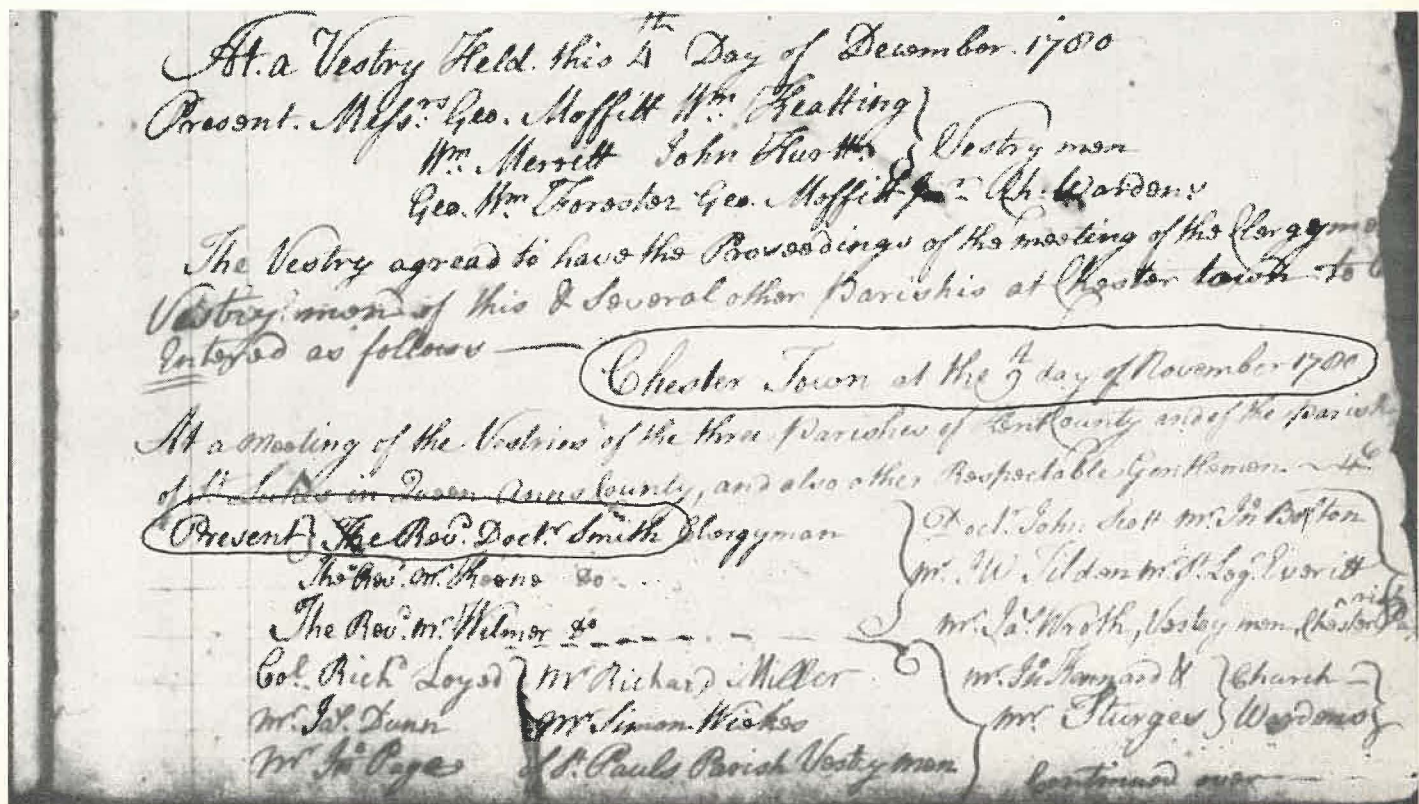 At a Vestry Held this 4th Day of December 1780
Present Messrs Geo. Moffitt Wm Keatting } Vestry men
Wm Merritt John Hurtt }
Geo. Wm Forester Geo. Moffitt Junr Ch. Wardens
The Vestry agread to have the Proceedings of the meeting of the Clergyme
Vestry men of this & Several other Parishis at Chester town to
Entered as follows —
Chester Town at the 9 day of November 1780
At a Meeting of the Vestries of the three Parishes of Kent County and of the parish
of St Lukes in Queen Anns County, and also other Respectable Gentlemen
Present } The Revd Doctr Smith Clergyman
The Revd Mr Keene do
The Revd Mr Wilmer do
Col. Richd Loyed } Mr Richard Miller
Mr Jas Dunn } Mr Simon Wickes
Mr Jno Page of St Pauls Parish Vestry men
Doctr John Scott Mr Jno Bolton
Mr Tilden Mr Everitt
Mr Jas Wroth, Vestry men, Chester Parish
Mr Jno Kennard & } Church
Mr Sturges } Wardens
Continued over —